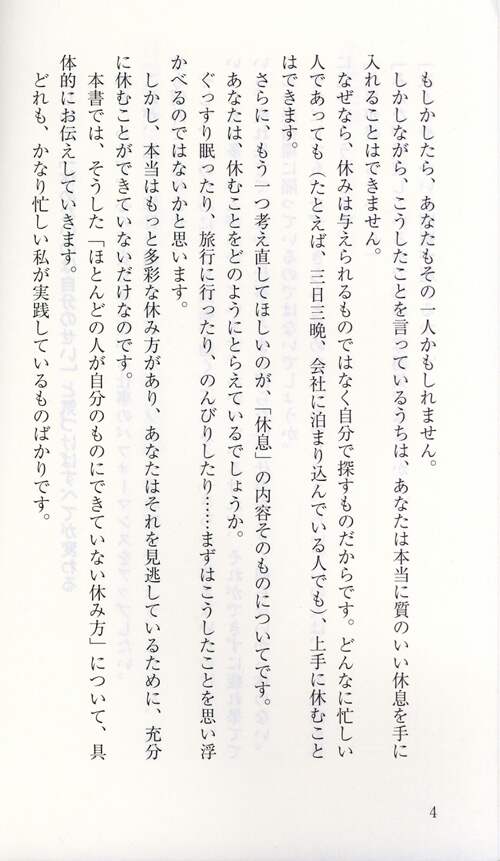 もしかしたら、あなたもその一人かもしれません。
しかしながら、こうしたことを言っているうちは、あなたは本当に質のいい休息を手に
入れることはできません。
なぜなら、休みは与えられるものではなく自分で探すものだからです。どんなに忙しい
人であっても（たとえば、三日三晩、会社に泊まり込んでいる人でも）、上手に休むこと
はできます。
さらに、もう一つ考え直してほしいのが、「休息」の内容そのものについてです。
あなたは、休むことをどのようにとらえているでしょうか。
ぐっすり眠ったり、旅行に行ったり、のんびりしたり……まずはこうしたことを思い浮
かべるのではないかと思います。
しかし、本当はもっと多彩な休み方があり、あなたはそれを見逃しているために、充分
に休むことができていないだけなのです。
本書では、そうした「ほとんどの人が自分のものにできていない休み方」について、具
体的にお伝えしていきます。
どれも、かなり忙しい私が実践しているものばかりです。
4